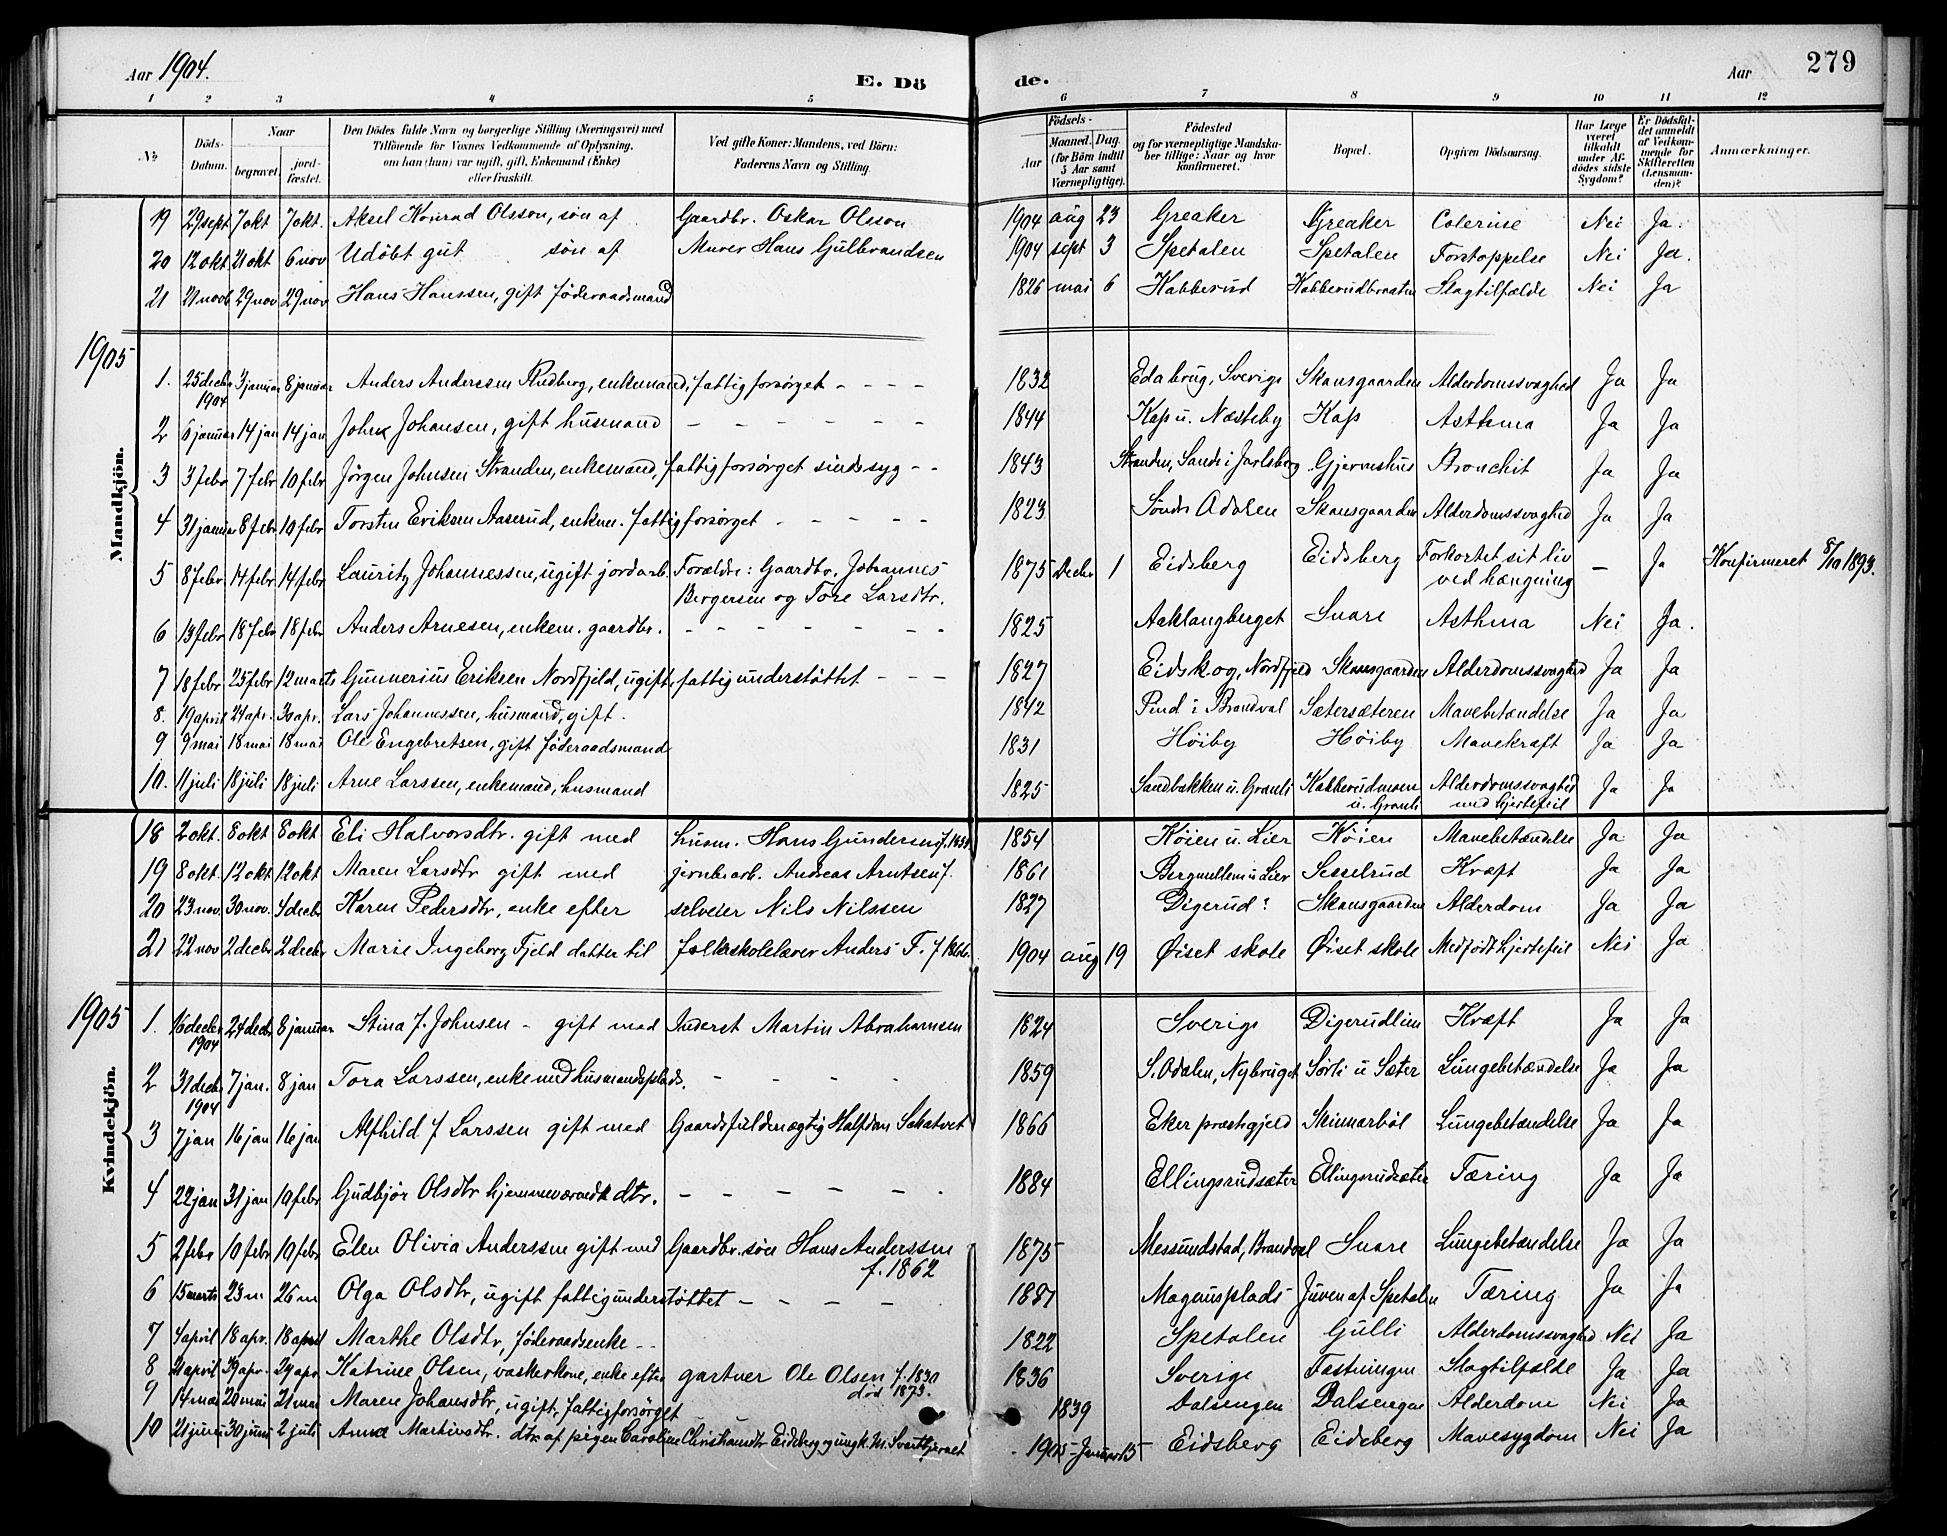 Aar 1904.
E. Dö
de.
Aar
279
1 2 3 4 5 6 7 8 9 10 11 12
No
Döds-Datum.
Naar
begravet.
jord-fæstet.
Den Dödes fulde Navn og borgerlige Stilling (Næringsvei) med
Tilföiende for Voxnes Vedkommende af Oplysning,
om han (hun) var ugift, gift, Enkemand (Enke)
eller fraskilt.
Ved gifte Koner: Mandens, ved Börn:
Faderens Navn og Stilling.
Födsels-
Aar
Maaned. Dag.
(for Börn indtil 5 Aar samt Værnepligtige).
Födested
og for værnepligtige Mandska-
ber tillige: Naar og hvor
konfirmeret.
Bopæl.
Opgiven Dödsaarsag.
Har Læge været tilkaldt under Af-dödes sidste Sygdom?
Er Dödsfal-det anmeldt af Vedkom-mende for Skifteretten (Lensman-den)?
Anmærkninger.
Mandkjön.
19 29 sept 7 okt 7 okt. Aksel Konrad Olsson, søn af Gaardbr. Oskar Olsson 1904 aug 23 Greaker Greaker Colerine Nei Ja.
20 12 okt 21 okt 6 nov Udøbt gut søn af Murer Hans Gulbrandsen 1904 sept 3 Spetalen Spetalen Forstoppelse Nei Ja.
21 21 novb 29 nov 29 nov Hans Hanssen, gift føderaadsmand 1826 mai 6 Habberud Habberudbraaten Slagtilfælde Nei Ja
1905
1. 25 decbr 1904 3 januar 8 januar Anders Anderssen Rudberg, enkemand, fattigforsørget - - - - 1832 Eda brug, Sverige Skansgaarden Alderdomssvaghed Ja Ja
2 6 januar 14 jan 14 jan Johan Johansen, gift husmand - - - - - - 1844 Kap u. Næsteby Kap Asthma Ja Ja
3 3 febr 7 febr 10 febr Jørgen Johnsen Stranden, enkemand, fattigforsørget sindssyg - - 1843 Stranden, Sande i Jarlsberg Gjerneshus Bronchit Ja Ja
4 31 januar 8 febr 10 febr Torsten Eriksen Aaserud, enkem. fattigforsørget - - - - - 1823 Søndr Odalen Skansgaarden Alderdomssvaghed Ja Ja
5 8 febr 14 febr 14 febr Lauritz Johannessen, ugift jordarb. Forældre: Gaardbr. Johannes 1875 Decbr 1 Eidsberg Eidsberg Forkortet sit liv — Ja Konfirmeret 8/10 1893.
Bergersen og Tore Larsdtr. ved hængning
6 13 febr 18 febr 18 febr Anders Arnesen, enkem. gaardbr. - - - - - - - 1825 Aaklangberget Snare Asthma Nei Ja.
7 18 febr 25 febr 12 marts Gunnerius Eriksen Nordfjeld, ugift, fattigunderstøttet - - - 1827 Eidskog, Nordfjeld Skansgaarden Alderdomssvaghed Ja Ja
8. 19 april 24 apr. 30 apr. Lars Johannessen, husmand, gift. 1842 Pind i Brandval Sætersæteren Mavebetændelse Ja Ja
9 9 mai 18 mai 18 mai Ole Engebretsen, gift føderaadsmand 1831 Høiby Høiby Mavekræft Ja Ja
10. 11 juli 18 juli 18 juli Arne Larssen, enkemand, husmand 1825 Sandbakken u. Granli Habberudmoen Alderdomssvaghed Ja Ja
u. Granli med hjertefeil
Kvindekjön.
18 2 okt. 8 okt 8 okt Eli Halvorsdtr. gift med husm. Hans Gundersen 1854 Køien u. Lier Køien Mavebetændelse Ja Ja
19 8 okt 12 okt 12 okt Maren Larsdtr gift med jernb.arb. Andreas Arntsen f. 1861 Bergmellem u Lier Sesselrud Kræft Ja Ja
20 23 nov. 30 nov. 4 decbr Karen Pedersdtr, enke efter selveier Nils Nilssen 1827 Digerud? Skansgaarden Alderdom Ja Ja
21 22 nov 2 decbr 2 decbr Marie Ingeborg Fjeld datter til folkeskolelærer Anders F. 1904 aug 19 Øiset skole Øiset skole Medfødt hjertefeil Nei Ja
1905
1. 16 decbr 1904 24 decbr 8 januar Stina J. Johnsen - gift med Inderst Martin Abrahamsen 1824 Sverige Digerudlien Kræft Ja Ja
2 31 decbr 1904 7 jan. 8 jan Tora Larssen, enke med husmandsplads. - - - - 1859 S. Odalen, Nybruget Sørli u Sæter Lungebetændelse Ja Ja
3 7 jan 16 jan 16 jan Alfhild J Larssen gift med Gaardsfuldmægtig Halfdan Sakatvet 1866 Eker præstegjeld Skinnarbøl Lungebetændelse Ja Ja
4 22 jan 31 jan 10 febr Gudbjør Olsdtr hjemmeværende dtr. - - - - - - 1884 Ellingsrudsæter Ellingsrudsæter Tæring Ja Ja
5 2 febr 10 febr 10 febr Elen Olivia Anderssen gift med Gaardbr. søn Hans Anderssen 1875 Messundstad, Brandval Snare Lungebetændelse Ja Ja
f. 1862
6 15 marts 23 m 26 m Olga Olsdtr, ugift fattigunderstøttet - - - - - 1881 Magnusplads Juven af Spetalen Tæring Ja Ja
7 4 april 18 apr. 18 april Marthe Olsdtr, føderaadsenke - - 1822 Spetalen Gulli Alderdomssvaghed Nei Ja
8 21 april 29 apr. 29 apr Katrine Olsen, vaskerkone, enke efter gartner Ole Olsen f. 1830 1836 Sverige Fæstningen Slagtilfælde Ja Ja
død 1873.
9 14 mai 20 mai 21 mai Maren Johansdtr, ugift, fattigforsørget 1839 Dalsengen Dalsengen Alderdom Nei Ja
10 21 juni 30 juni 2 juli Anna Martinsdtr. dtr. af pigen Caroline Christiansdtr Eidsberg og ungk. M. Svartbjernet 1905 - Januar 15 Eidsberg Eidsberg Mavesygdom Nei Ja